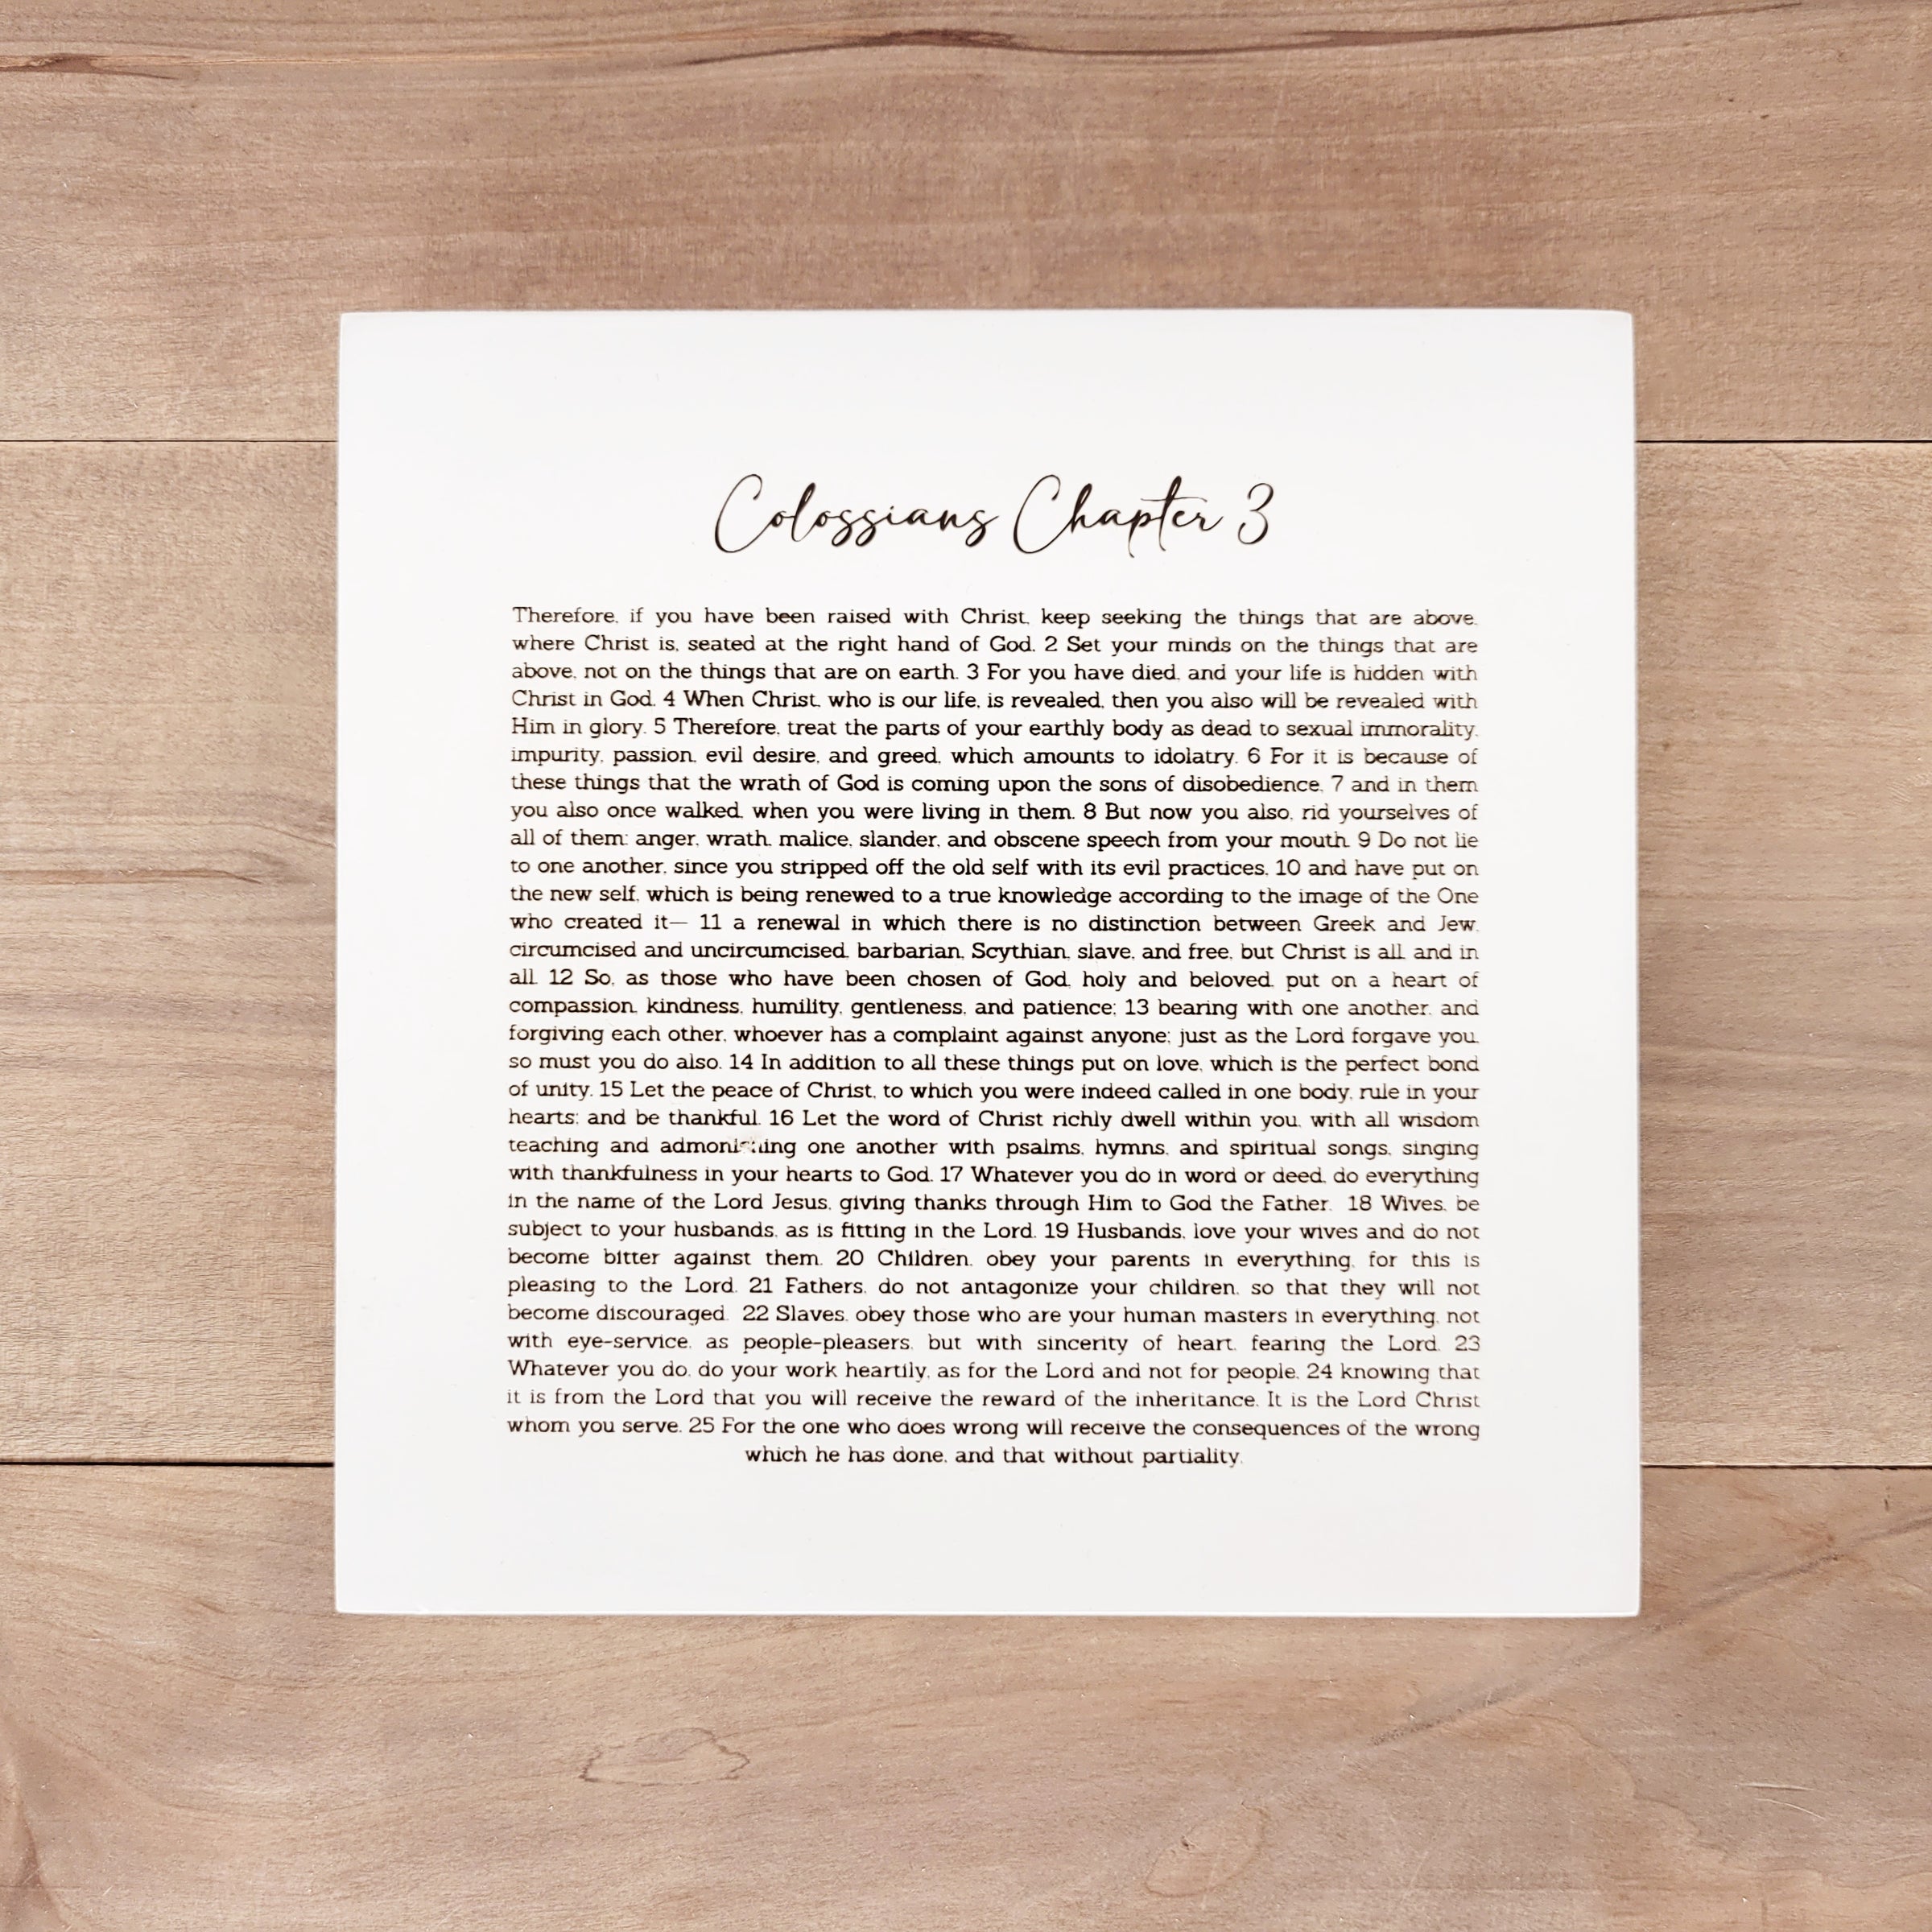 Colossians Chapter 3
Therefore, if you have been raised with Christ, keep seeking the things that are above,
where Christ is, seated at the right hand of God. 2 Set your minds on the things that are
above, not on the things that are on earth. 3 For you have died, and your life is hidden with
Christ in God. 4 When Christ, who is our life, is revealed, then you also will be revealed with
Him in glory. 5 Therefore, treat the parts of your earthly body as dead to sexual immorality,
impurity, passion, evil desire, and greed, which amounts to idolatry. 6 For it is because of
these things that the wrath of God is coming upon the sons of disobedience, 7 and in them
you also once walked, when you were living in them. 8 But now you also, rid yourselves of
all of them: anger, wrath, malice, slander, and obscene speech from your mouth. 9 Do not lie
to one another, since you stripped off the old self with its evil practices, 10 and have put on
the new self, which is being renewed to a true knowledge according to the image of the One
who created it— 11 a renewal in which there is no distinction between Greek and Jew,
circumcised and uncircumcised, barbarian, Scythian, slave, and free, but Christ is all, and in
all. 12 So, as those who have been chosen of God, holy and beloved, put on a heart of
compassion, kindness, humility, gentleness, and patience; 13 bearing with one another, and
forgiving each other, whoever has a complaint against anyone; just as the Lord forgave you,
so must you do also. 14 In addition to all these things put on love, which is the perfect bond
of unity. 15 Let the peace of Christ, to which you were indeed called in one body, rule in your
hearts; and be thankful. 16 Let the word of Christ richly dwell within you, with all wisdom
teaching and admonishing one another with psalms, hymns, and spiritual songs, singing
with thankfulness in your hearts to God. 17 Whatever you do in word or deed, do everything
in the name of the Lord Jesus, giving thanks through Him to God the Father. 18 Wives, be
subject to your husbands, as is fitting in the Lord. 19 Husbands, love your wives and do not
become bitter against them. 20 Children, obey your parents in everything, for this is
pleasing to the Lord. 21 Fathers, do not antagonize your children, so that they will not
become discouraged. 22 Slaves, obey those who are your human masters in everything, not
with eye-service, as people-pleasers, but with sincerity of heart, fearing the Lord. 23
Whatever you do, do your work heartily, as for the Lord and not for people, 24 knowing that
it is from the Lord that you will receive the reward of the inheritance. It is the Lord Christ
whom you serve. 25 For the one who does wrong will receive the consequences of the wrong
which he has done, and that without partiality.